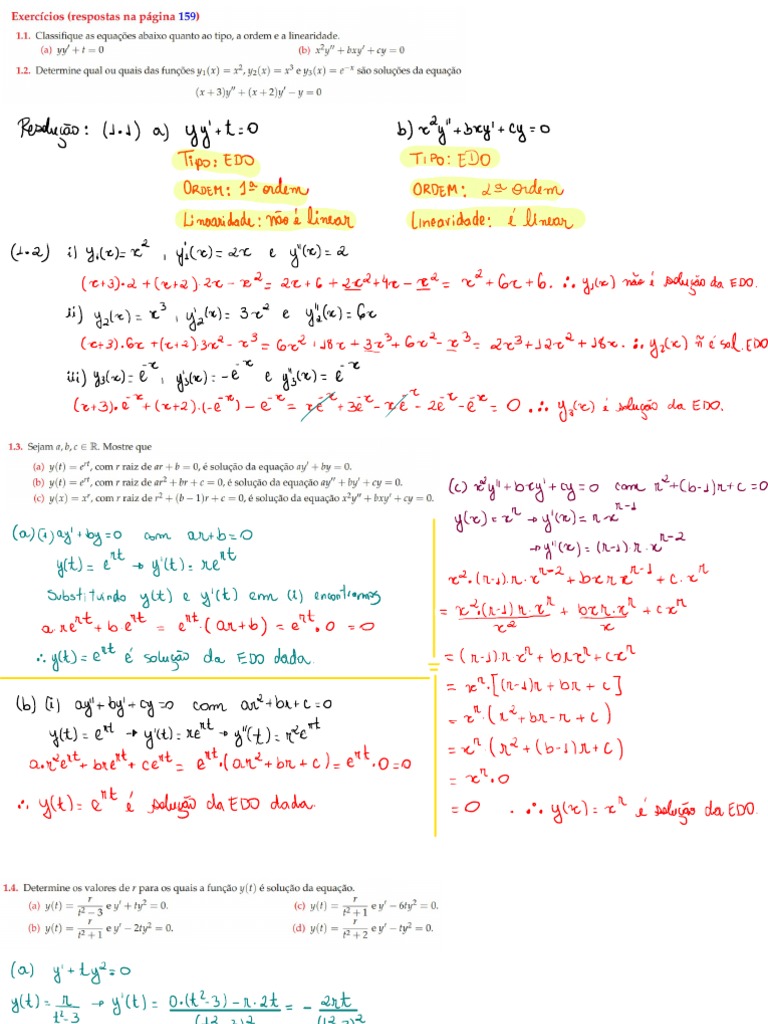 Exercícios (respostas na página 159)
1.1. Classifique as equações abaixo quanto ao tipo, a ordem e a linearidade.
(a) yy′ + t = 0 (b) x²y″ + bxy′ + cy = 0
1.2. Determine qual ou quais das funções y₁(x) = x², y₂(x) = x³ e y₃(x) = e⁻ˣ são soluções da equação
(x + 3)y″ + (x + 2)y′ − y = 0
Resolução: (1.1) a) yy' + t = 0 b) x²y'' + bxy' + cy = 0
Tipo: EDO TIPO: EDO
ORDEM: 1ª ordem ORDEM: 2ª ordem
Linearidade: não é linear Linearidade: é linear
(1.2) i) y₁(x) = x², y₁'(x) = 2x e y''(x) = 2
(x+3)·2 + (x+2)·2x − x² = 2x + 6 + 2x² + 4x − x² = x² + 6x + 6. ∴ y₁(x) não é solução da EDO.
ii) y₂(x) = x³, y₂'(x) = 3x² e y₂''(x) = 6x
(x+3)·6x + (x+2)3x² − x³ = 6x² + 18x + 3x³ + 6x² − x³ = 2x³ + 12x² + 18x. ∴ y₂(x) ñ é sol. EDO
iii) y₃(x) = e⁻ˣ, y₃'(x) = −e⁻ˣ e y₃''(x) = e⁻ˣ
(x+3)·e⁻ˣ + (x+2)·(−e⁻ˣ) − e⁻ˣ = xe⁻ˣ + 3e⁻ˣ − xe⁻ˣ − 2e⁻ˣ − e⁻ˣ = 0. ∴ y₃(x) é solução da EDO.
1.3. Sejam a, b, c ∈ ℝ. Mostre que
(a) y(t) = eʳᵗ, com r raiz de ar + b = 0, é solução da equação ay′ + by = 0.
(b) y(t) = eʳᵗ, com r raiz de ar² + br + c = 0, é solução da equação ay″ + by′ + cy = 0.
(c) y(x) = xʳ, com r raiz de r² + (b − 1)r + c = 0, é solução da equação x²y″ + bxy′ + cy = 0.
(a) (i) ay' + by = 0 com ar + b = 0
y(t) = eʳᵗ → y'(t) = reʳᵗ
Substituindo y(t) e y'(t) em (i) encontramos
a·reʳᵗ + b·eʳᵗ = eʳᵗ·(ar + b) = eʳᵗ·0 = 0
∴ y(t) = eʳᵗ é solução da EDO dada.
(b) (i) ay'' + by' + cy = 0 com ar² + br + c = 0
y(t) = eʳᵗ → y'(t) = reʳᵗ → y''(t) = r²eʳᵗ
a·r²eʳᵗ + breʳᵗ + ceʳᵗ = eʳᵗ·(ar² + br + c) = eʳᵗ·0 = 0
∴ y(t) = eʳᵗ é solução da EDO dada.
(c) x²y'' + bxy' + cy = 0 com r² + (b−1)r + c = 0
y(x) = xʳ → y'(x) = r·xʳ⁻¹
→ y''(x) = (r−1)r·xʳ⁻²
x²·(r−1)·r·xʳ⁻² + bxrxʳ⁻¹ + c·xʳ
= x²·(r−1)r·xʳ/x² + bxr·xʳ/x + cxʳ
= (r−1)·r·xʳ + brxʳ + cxʳ
= xʳ·[(r−1)r + br + c]
= xʳ·(r² + br − r + c)
= xʳ(r² + (b−1)r + c)
= xʳ·0
= 0 . ∴ y(x) = xʳ é solução da EDO.
1.4. Determine os valores de r para os quais a função y(t) é solução da equação.
(a) y(t) = r/(t² − 3) e y′ + ty² = 0. (c) y(t) = r/(t² + 1) e y′ − 6ty² = 0.
(b) y(t) = r/(t² + 1) e y′ − 2ty² = 0. (d) y(t) = r/(t² + 2) e y′ − ty² = 0.
(a) y' + ty² = 0
y(t) = r/(t²−3) → y'(t) = (0·(t²−3) − r·2t)/(t²−3)² = − 2rt/(t²−3)²